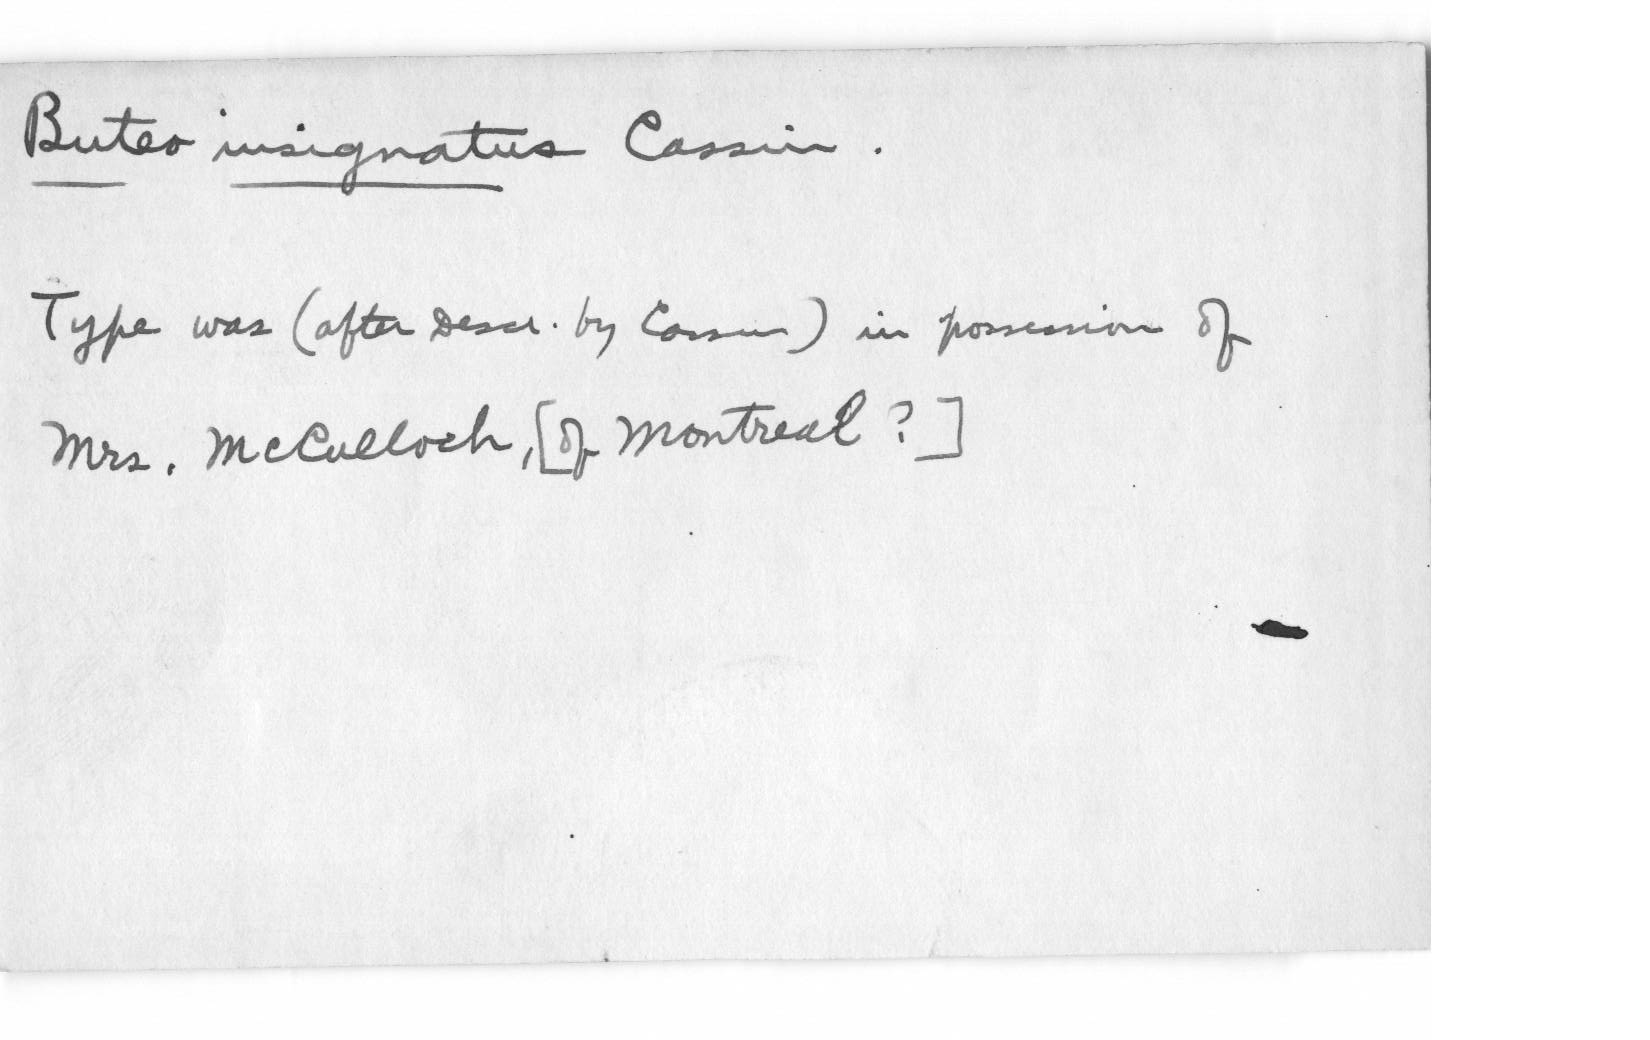 Buteo insignatus Cassin.
Type was (after Descr. by Cassin) in possession of
Mrs. McCulloch, [of Montreal?]